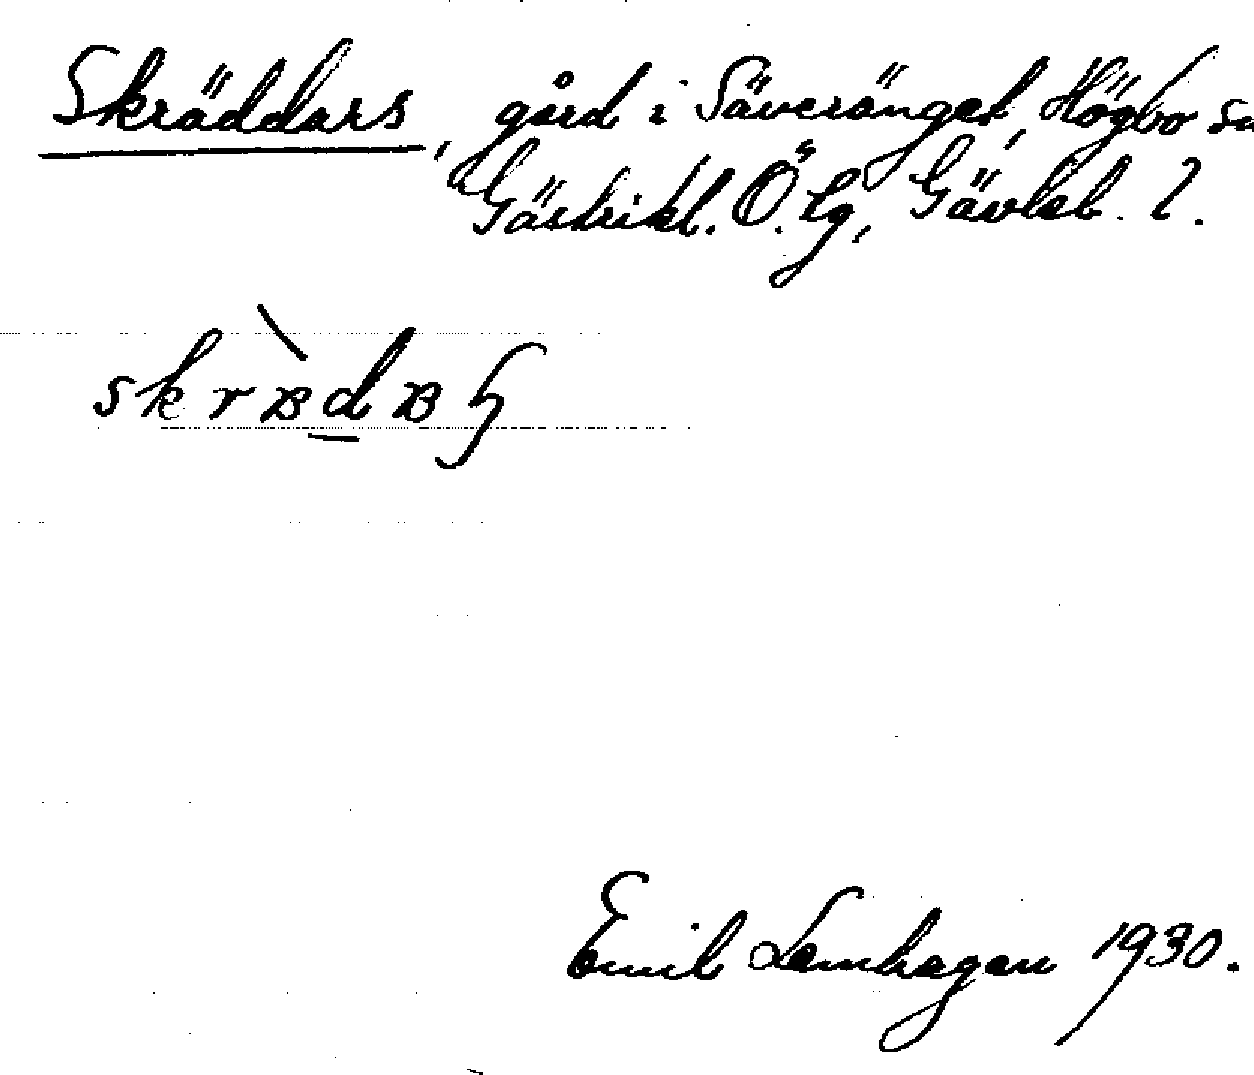 Skräddars, gård i Säveränget, Högbo sn
Gästrikl. Ö. lg, Gävleb. l.
Emil Lemhagen 1930.